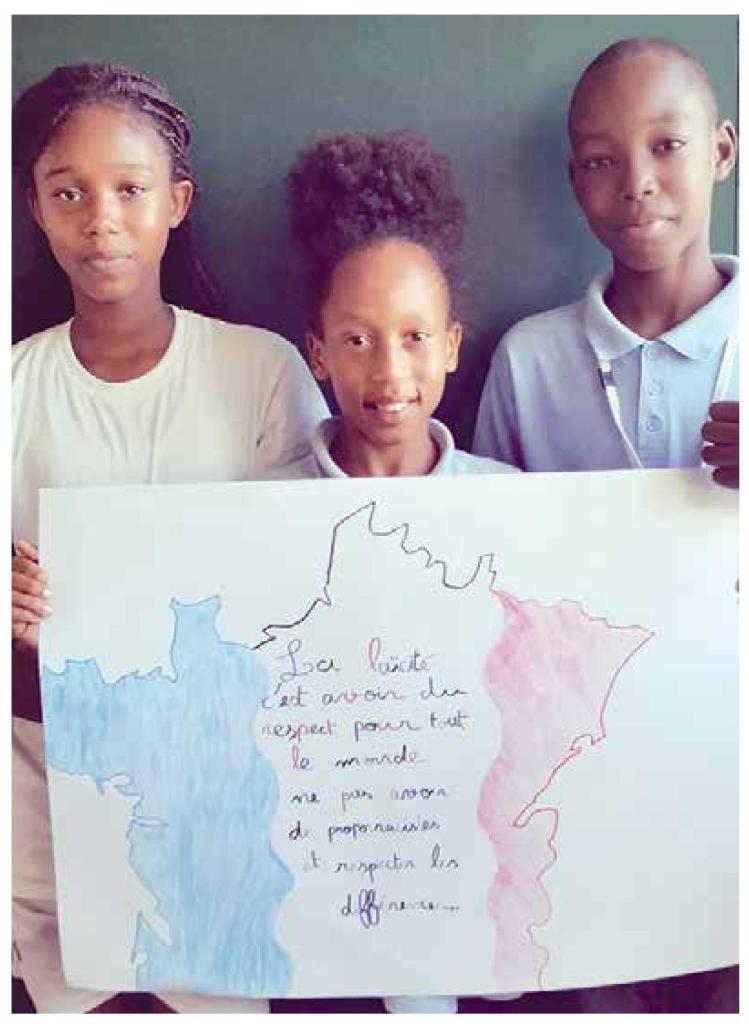 La laïcité
c'est avoir du
respect pour tout
le monde
ne pas avoir
de propos racistes
et respecter les
différences...